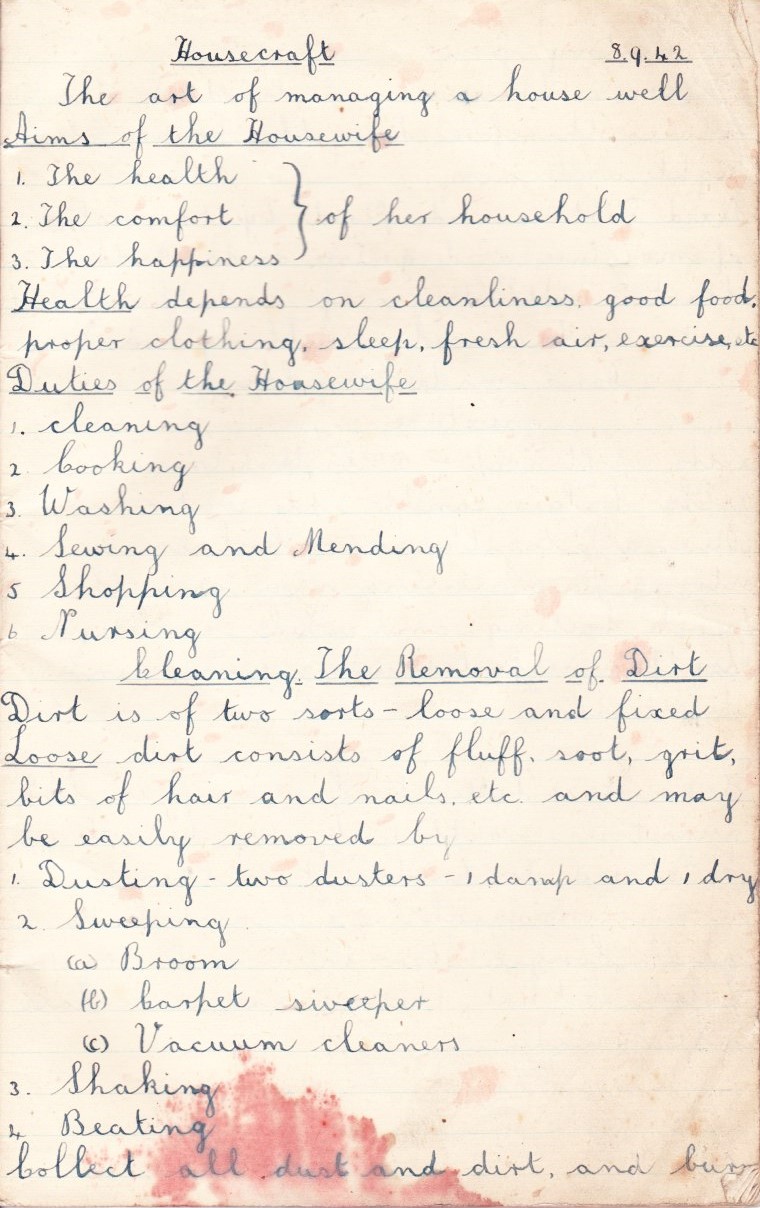 Housecraft 8.9.42
The art of managing a house well
Aims of the Housewife
1. The health
2. The comfort } of her household
3. The happiness
Health depends on cleanliness, good food,
proper clothing, sleep, fresh air, exercise, etc
Duties of the Housewife
1. cleaning
2 Cooking
3. Washing
4. Sewing and Mending
5 Shopping
6 Nursing
Cleaning. The Removal of Dirt
Dirt is of two sorts - loose and fixed
Loose dirt consists of fluff, soot, grit,
bits of hair and nails, etc. and may
be easily removed by
1. Dusting - two dusters - 1 damp and 1 dry
2. Sweeping
(a) Broom
(b) Carpet sweeper
(c) Vacuum cleaners
3. Shaking
4 Beating
Collect all dust and dirt, and burn